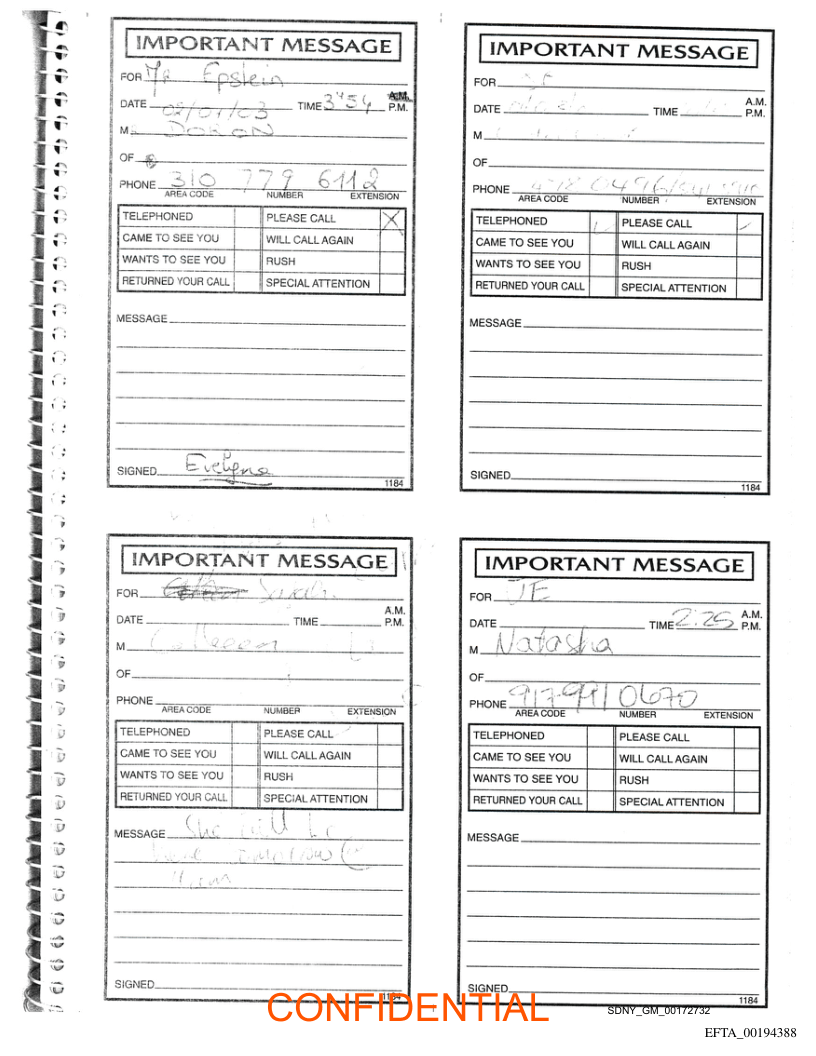 IMPORTANT MESSAGE
FOR Mr Epstein
DATE 02/01/03 TIME 3:54 A.M. P.M.
M DORON
OF
PHONE 310 779 6112
AREA CODE NUMBER EXTENSION
TELEPHONED PLEASE CALL X
CAME TO SEE YOU WILL CALL AGAIN
WANTS TO SEE YOU RUSH
RETURNED YOUR CALL SPECIAL ATTENTION
MESSAGE
SIGNED Evelyne
1184
IMPORTANT MESSAGE
FOR
DATE TIME A.M. P.M.
M
OF
PHONE
AREA CODE NUMBER EXTENSION
TELEPHONED PLEASE CALL
CAME TO SEE YOU WILL CALL AGAIN
WANTS TO SEE YOU RUSH
RETURNED YOUR CALL SPECIAL ATTENTION
MESSAGE
SIGNED
1184
IMPORTANT MESSAGE
FOR Sarah
DATE TIME A.M. P.M.
M Colleen
OF
PHONE
AREA CODE NUMBER EXTENSION
TELEPHONED PLEASE CALL
CAME TO SEE YOU WILL CALL AGAIN
WANTS TO SEE YOU RUSH
RETURNED YOUR CALL SPECIAL ATTENTION
MESSAGE She will be
here tomorrow @
SIGNED
1184
IMPORTANT MESSAGE
FOR JE
DATE TIME 2:25 A.M. P.M.
M Natasha
OF
PHONE 917-991 0670
AREA CODE NUMBER EXTENSION
TELEPHONED PLEASE CALL
CAME TO SEE YOU WILL CALL AGAIN
WANTS TO SEE YOU RUSH
RETURNED YOUR CALL SPECIAL ATTENTION
MESSAGE
SIGNED
1184
CONFIDENTIAL
SDNY_GM_00172732
EFTA_00194388